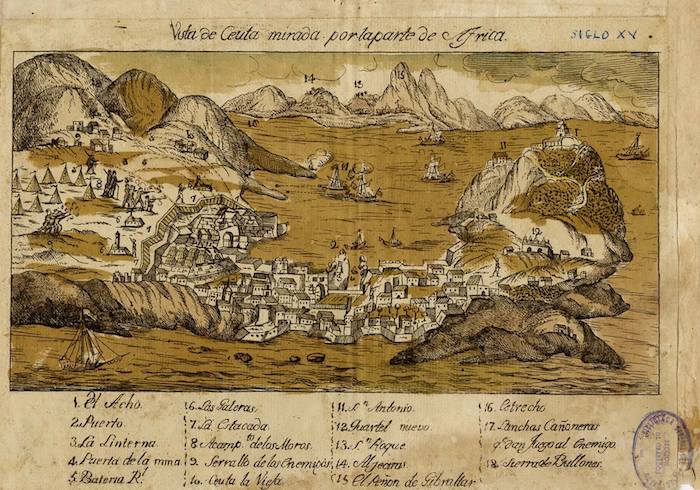 Vista de Ceuta mirada por la parte de Africa.
SIGLO XV
1. El Acho.
2. Puerto.
3. La Linterna.
4. Puerta de la mina
5. Bateria Rl.
6. Las Galeras.
7. La Estacada.
8 Acampto. de los Moros.
9. Serrallo de los Enemigos
10. Ceuta la Vieja
11. Sn. Antonio.
12 Quartel nuevo.
13. Sn. Roque.
14. Algeciras
15 El Peñon de Gibraltar
16. Estrecho
17. Lanchas Cañoneras
q. dan fuego al Enemigo.
18. Sierra de Bullones.